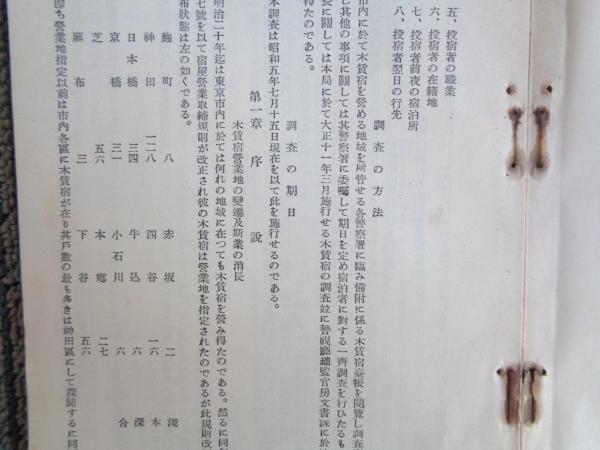 五、投宿者の職業
六、投宿者の在籍地
七、投宿者前夜の宿泊所
八、投宿者翌日の行先
調査の方法
市内に於て木賃宿を營める地域を所管せる各警察署に臨み備附に係る木賃宿臺帳を閲覽し調査
し其他の事項に關しては其警察署に委囑して期日を定め宿泊者に對する一齊調査を行ひたるも
長に關しては本局に於て大正十一年三月施行せる木賃宿の調査竝に警視廳總監官房文書課に於
得たのである。
調査の期日
本調査は昭和五年七月十五日現在を以て此を施行せるのである。
第一章 序說
木賃宿營業地の變遷及斯業の消長
明治二十年迄は東京市內に於ては何れの地域に在つても木賃宿を營み得たのである。然るに同年
七號を以て宿屋營業取締規則が改正され彼の木賃宿は營業地を指定されたのであるが此規則改
布狀態は左の如くである。
麴町 八 赤坂 二 淺
神田 一二八 四谷 一六 本
日本橋 三四 牛込 六 深
京橋 三一 小石川 六 合
芝 五六 本鄕 二七
麻布 三 下谷 五六
卽ち營業地指定以前は市內各區に木賃宿が在り其戶數の最も多きは神田區にして探聞するに同